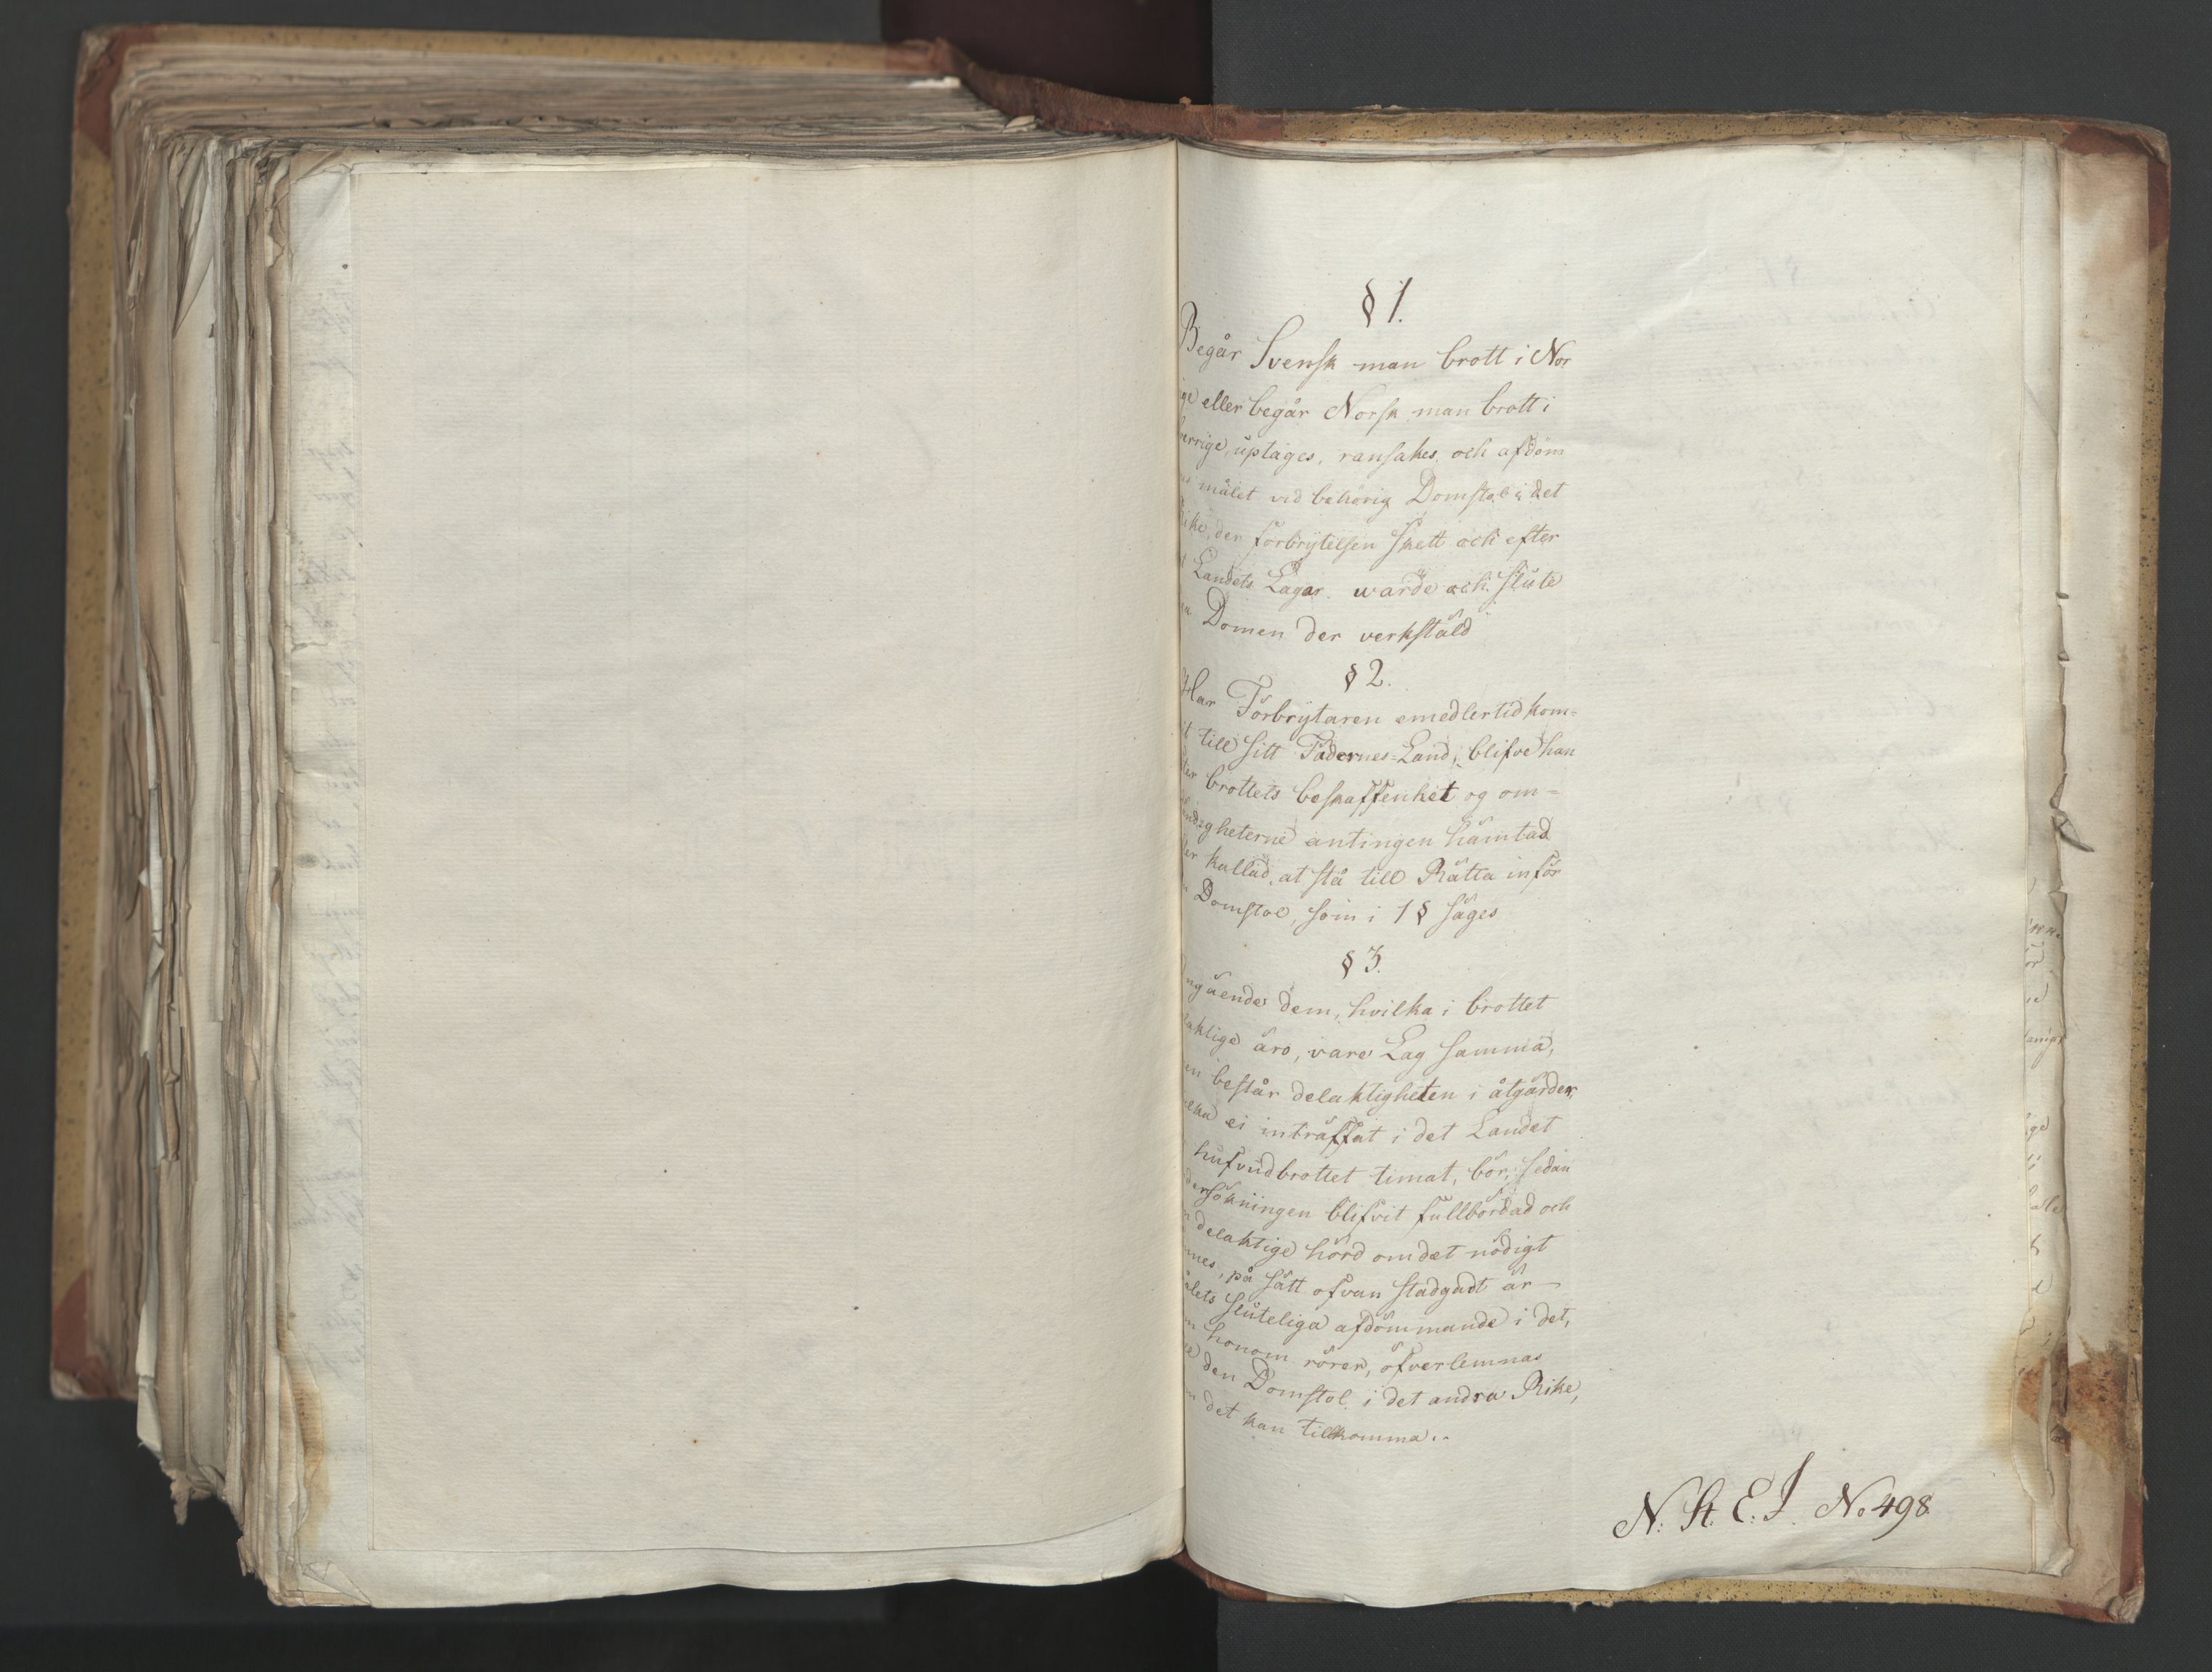 § 1.
Begår Svensk man brott i Nor
ige eller begår Norsk man brott i
verrige, uptages, ransakes och afdöm
målet vid behörig Domstol i det
ike, der förbrytelsen skett och efter
Landets Lagar. warde och slute
a Domen der verkstäld
§ 2.
Har Förbrytaren emedlertid kom-
it till sitt Fädernes-Land, blifve han
ter brottets beskaffenhet og om-
ndigheterne antingen hämtad
ler kallad, at stå till Rätta inför
Domstol, som i 1 § säges
§ 3.
ngående dem, hvilka i brottet
laktige äro, vare Lag samma,
en består delaktigheten i åtgärder,
lka ei inträffat i det Landet
hufvudbrottet timat, bör, sedan
dersökningen blifvit fullbordad och
n delaktige hörd om det nödigt
nnes, på sätt ofvan stadgadt är
ålets sluteliga afdömmande i det,
m honom rörer, öfverlemnas
den Domstol i det andra Rike,
m det kan tillkomma..
N: St. E: J. No 498.